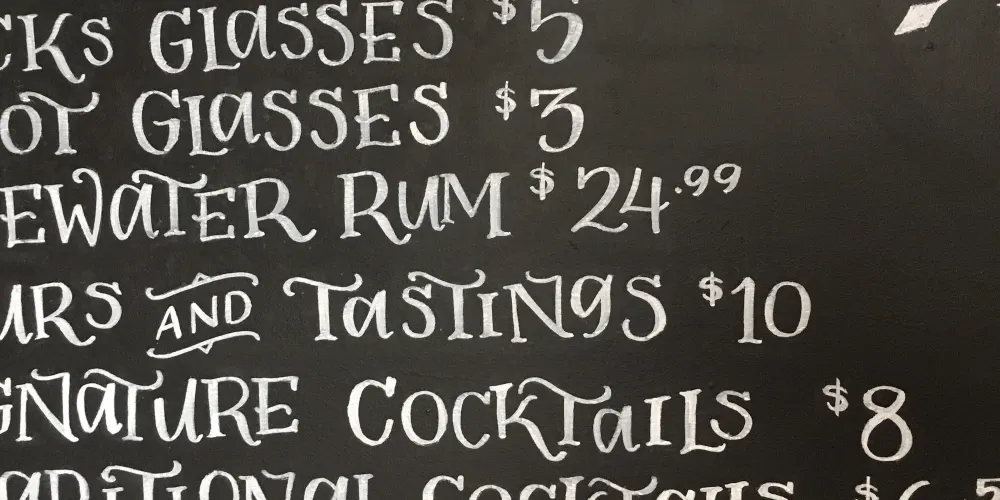 CKS GLASSES $5
OT GLASSES $3
EWATER RUM $24.99
URS AND TASTINGS $10
GNATURE COCKTAILS $8
ADITIONAL COCKTAILS $6.5